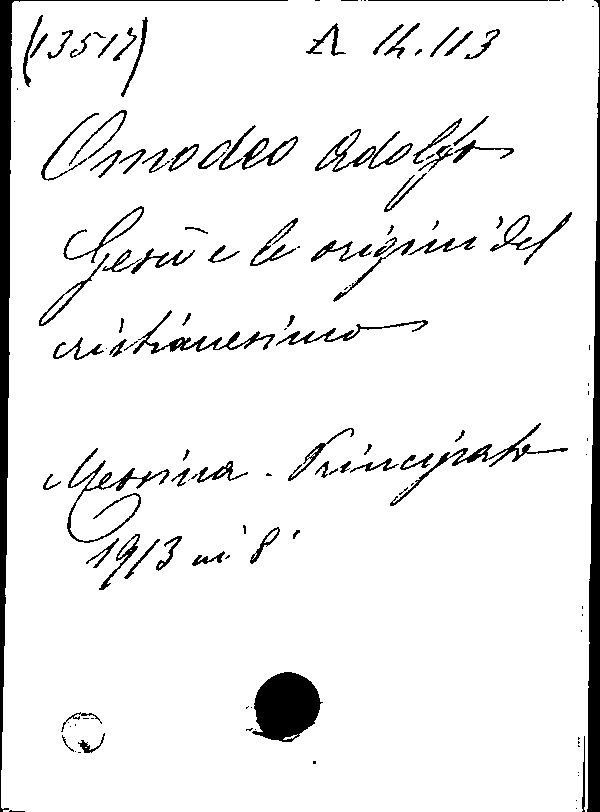 (13517) A 14.113
Omodeo Adolfo
Gesù e le origini del
cristianesimo
Messina - Principato
1913 in 8°